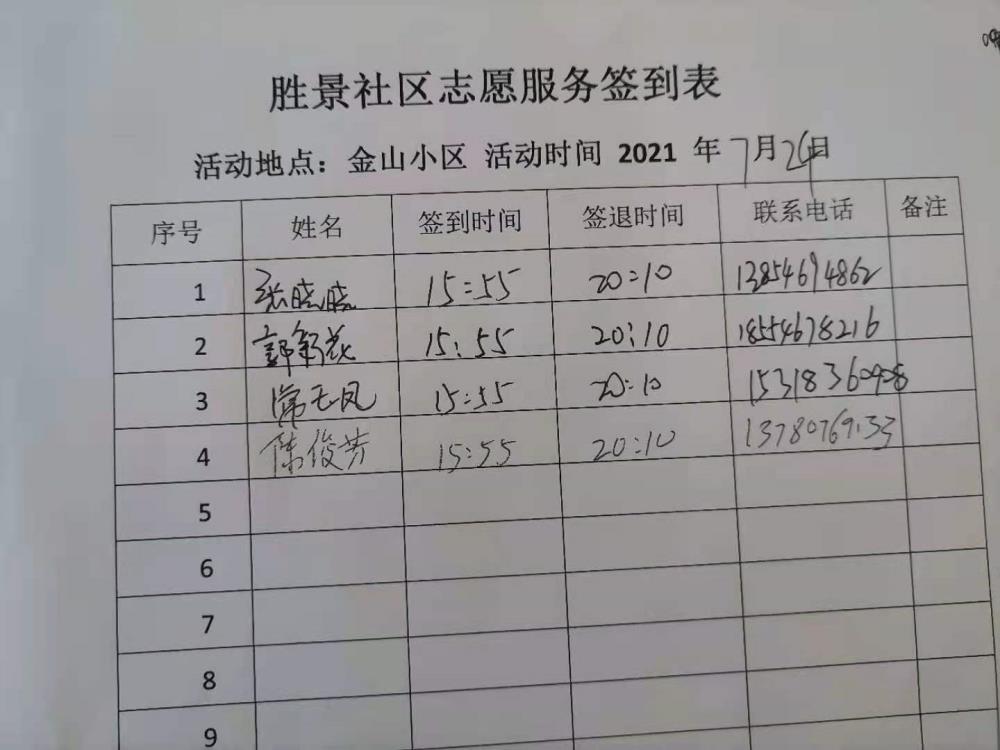 胜景社区志愿服务签到表
活动地点：金山小区 活动时间 2021 年 7月26日
序号 姓名 签到时间 签退时间 联系电话 备注
1 张晓晓 15:55 20:10 13854694862
2 15:55 20:10 18554678216
3 常玉凤 15:55 20:10
4 陈俊芳 15:55 20:10
5
6
7
8
9